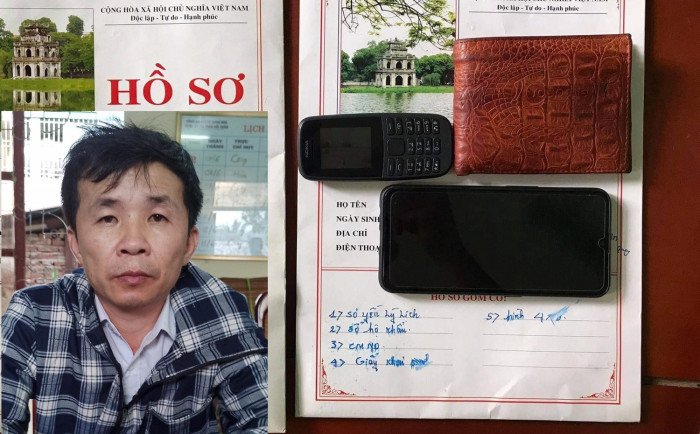 CỘNG HÒA XÃ HỘI CHỦ NGHĨA VIỆT NAM
Độc lập - Tự do - Hạnh phúc
HỒ SƠ
LỊCH
Độc lập - Tự do - Hạnh phúc
HỌ TÊN
NGÀY SINH
ĐỊA CHỈ
ĐIỆN THOẠI
HỒ SƠ GỒM CÓ:
1> Sơ yếu lý lịch
2> Sổ hộ khẩu
3> CMND
4> Giấy khai
5> hình 4